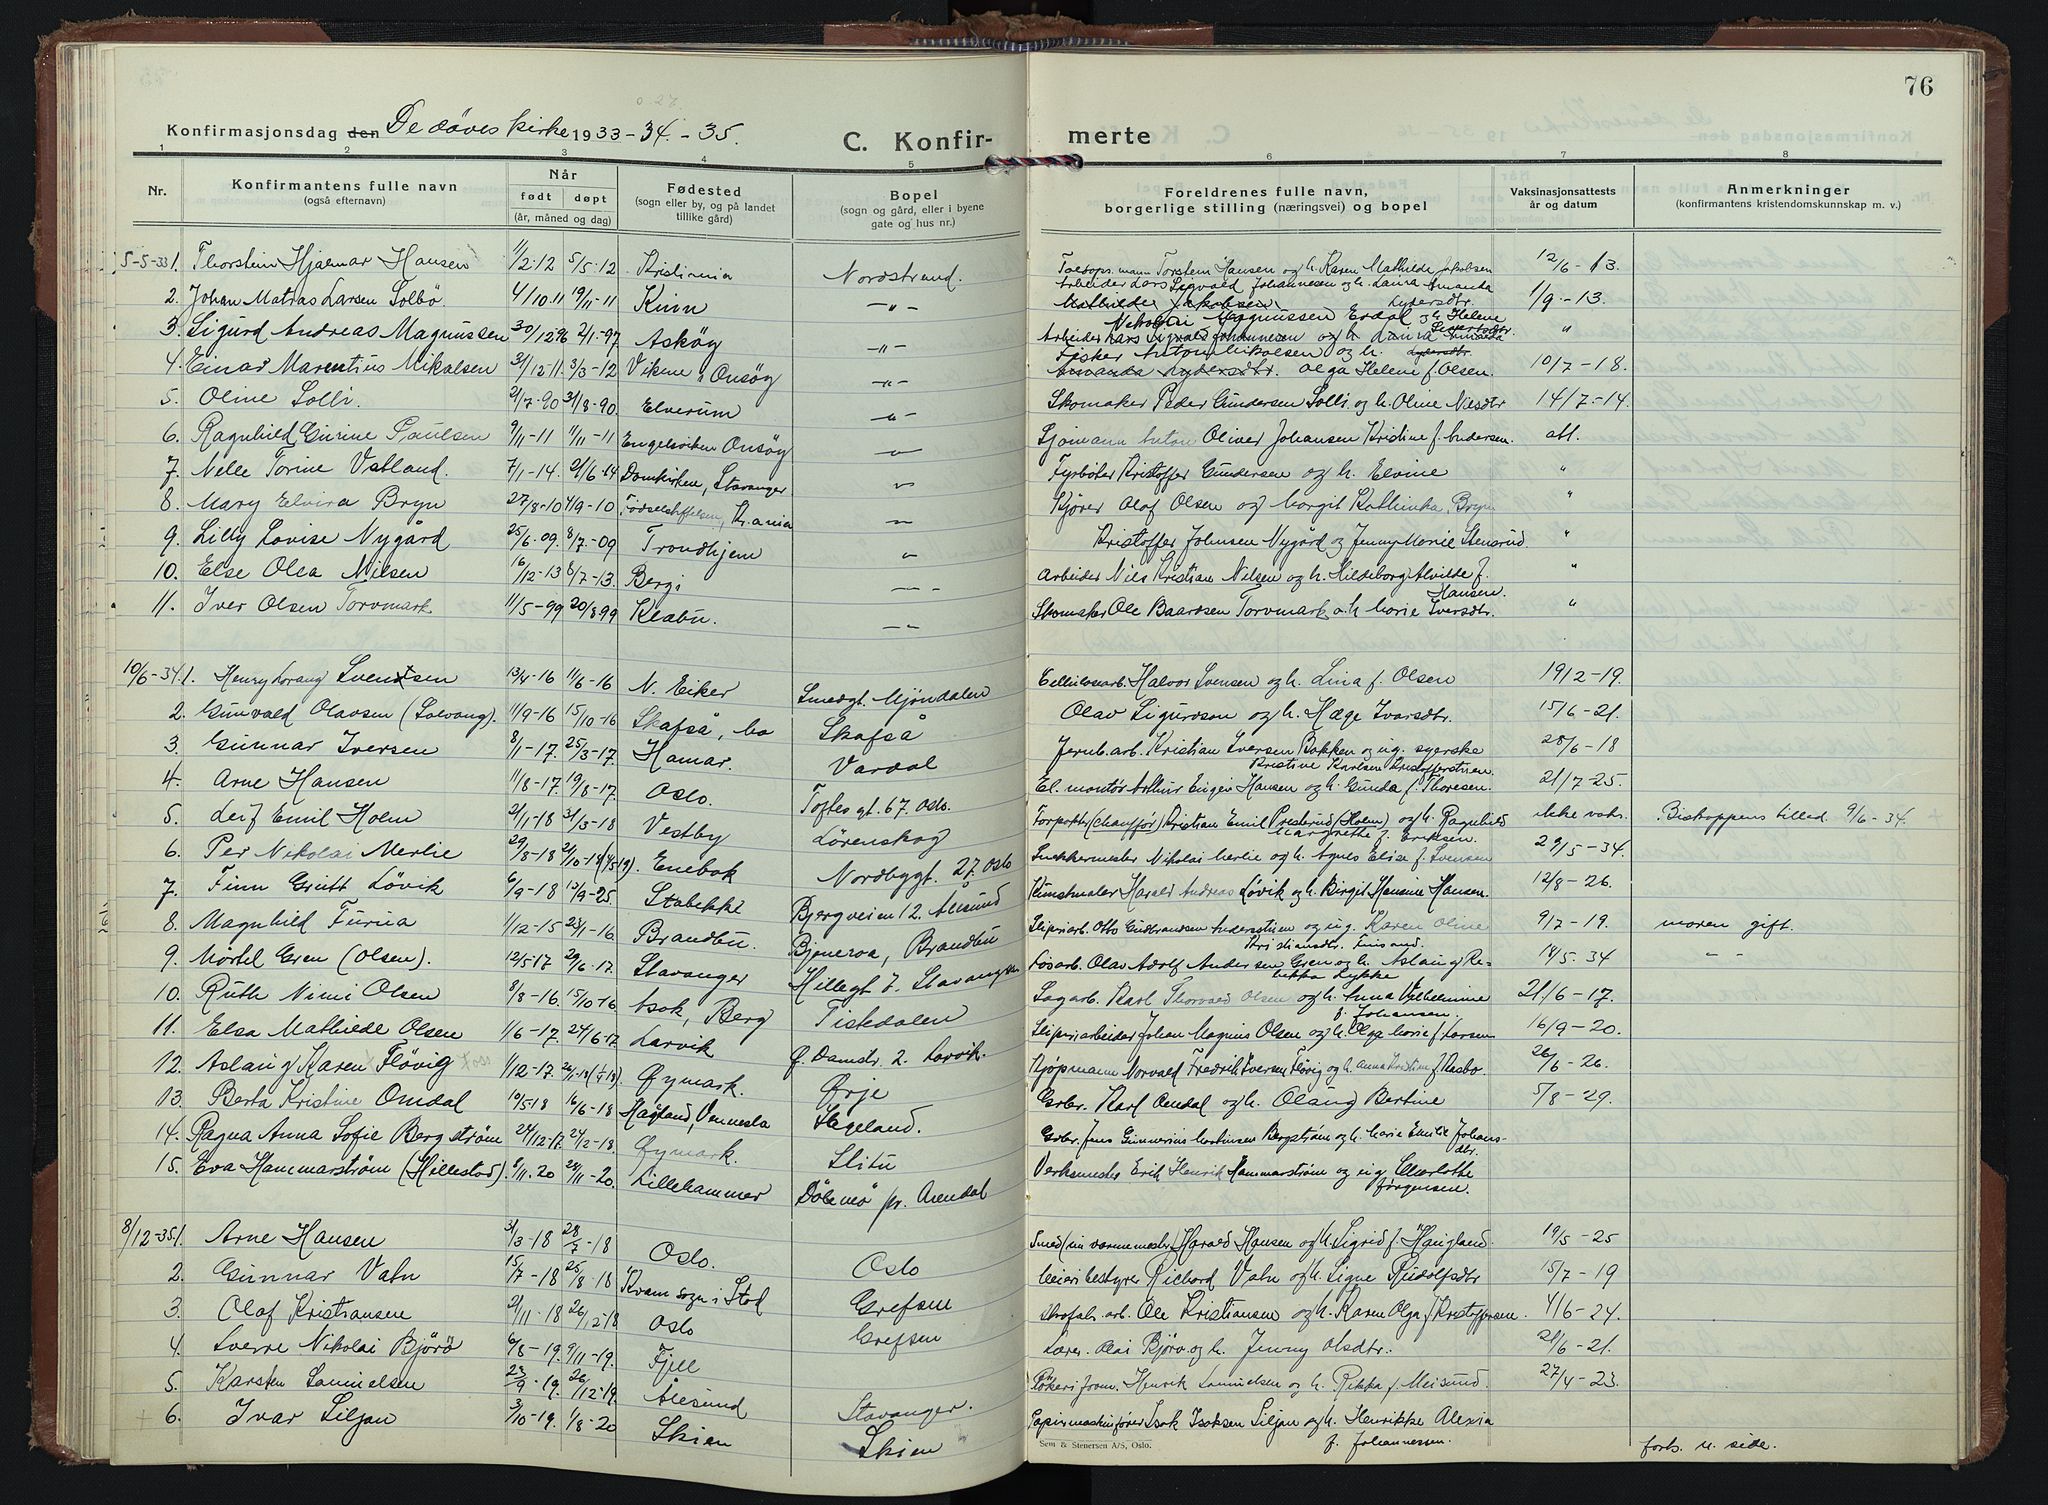 76
Konfirmasjonsdag den De døves kirke 1933-34-35.
C. Konfir-
merte
1 2 3 4 5 6 7 8
Nr.
Konfirmantens fulle navn
(også efternavn)
Når
født døpt
(år, måned og dag)
Fødested
(sogn eller by, og på landet
tillike gård)
Bopel
(sogn og gård, eller i byene
gate og hus nr.)
Foreldrenes fulle navn,
borgerlige stilling (næringsvei) og bopel
Vaksinasjonsattests
år og datum
Anmerkninger
(konfirmantens kristendomskunnskap m. v.)
5-5-33 1. Thorstein Hjalmar Hansen 11/2-12 5/5-12 Kristiania Nordstrand. Torstein Hansen og h. Karen Mathilde Jakobsen 12/6-13.
2. Johan Matias Larsen Solbø 4/10-11 19/11-11 Kinn -"- Arbeider Lars Sigvald Johannesen og h. Laura Amanda Lydersdtr. 1/9-13.
3. Sigurd Andreas Magnussen 30/12-96 2/1-97 Askøy -"- Nikolai Magnussen Erdal og h. Helene "
Arbeider Lars Sigvald Johannesen og h.
4. Einar Marentius Mikalsen 31/12-11 3/3-12 Vikene, Onsøy -"- Fisker Anton Mikalsen og h. Olga Helene f. Olsen. 10/7-18.
5. Oline Solli. 21/7-90 31/8-90. Elverum -"- Skomaker Peder Gundersen Solli og h. Oline Nilsdtr 14/7-14.
6. Ragnhild Gurine Paulsen 9/11-11 11/11-11 Engelsviken Onsøy -"- Sjømann Anton Oliver Johansen Kristine f. Andersen. att.
7. Nelle Torine Vatland. 7/1-14. 21/6-14 Domkirken, Stavanger -"- Fyrbøter Kristoffer Gundersen og h. Elvine "
8. Mary Elvira Bryn 27/8-10 4/9-10 Fødselsstiftelsen, Kr.ania -"- Kjører Olaf Olsen og Margit Kathinka Bryn "
9. Lilly Lovise Nygård 25/6-09. 8/7-09 Trondhjem -"- Kristoffer Johnsen Nygård og Jenny Marie Stensrud. "
10. Else Olea Nilsen 16/12-13 8/7-13. Berg i -"- Arbeider Nils Kristian Nilsen og h. Hildeborg Alvilde f. Hansen. "
11. Iver Olsen Torvmark. 11/5-99 20/8 99 Klæbu. -"- Skomaker Ole Baardsen Torvmark o.h Marie Iversdtr. "
10/6-34. 1. Henry Lorang Svendsen 13/4-16 11/6-16 N. Eiker Smedgt. Mjøndalen Cellulosearb. Halvor Svensen og h. Lina f. Olsen 19/2-19.
2. Gunvald Olavsen (Solvang). 11/9-16 15/10-16 Skafså, Mo Skafså Olav Sigurdson og h. Hæge Ivarsdtr. 15/6-21.
3. Gunnar Iversen 8/1-17. 25/3-17. Hamar. Vardal Jernb.arb. Kristian Iversen Bakken og ug. syerske Kristine Karlsen 28/6-18
4. Arne Hansen 11/8-17. 19/8-17. Oslo. Toftes gt. 67 Oslo. El. montør Arthur Einger Hansen og h. Gunda f. Thoresen. 21/7-25.
5. Leif Emil Holm 21/1-18 31/3-18 Vestby Lørenskog (Chauffør) Kristian Emil Presterud (Holm) og h. Ragnhild Margrethe f. Eriksen. ikke vaks. Biskoppens tillad. 9/6-34.
6. Per Nikolai Merlie 29/8-18 21/10-18 Enebak Nordbygt. 27. Oslo Snekkermester Nikolai Merlie og h. Agnes Elise f. Svensen 29/5-34.
7. Finn Griitt Løvik 6/9-18 13/9-25. Stabekk Bjergveien 12. Ålesund Kunstmaler Harald Andreas Løvik og h. Birgit Hansine Hansen. 12/8-26.
8. Magnhild Furua 1/12-15 23/1-16. Brandbu. Bjoneroa, Brandbu Sliperiarb. Otto Gudbrandsen Anderstuen og ug. Karen Oline Kristiansdtr. 9/7-19. moren gift.
9. Mörtel Gren (Olsen). 12/5-17 29/6-17. Stavanger Hillegt 7. Stavanger Løsarb. Olav Adolf Andersen Gren og h. Aslaug Rebekka Lykke 14/5-34 " "
10. Ruth Nimi Olsen 8/8-16. 15/10-16 Asak, Berg Tistedalen Sagarb. Karl Thorvald Olsen og h. Anna Vilhelmine f. Johansen. 21/6-17.
11. Elsa Mathilde Olsen 1/6-17. 24/6-17. Larvik Ø. Damstr. 2. Larvik. Sliperiarbeider Johan Magnus Olsen og h. Olga Marie f. Larsen 16/9-20.
12. Aslaug Karen Fløvig 1/12-17. Øymark. Ørje Kjøpmann Norvald Fredrik Iversen Fløvig og h. Anna Kristine f. Rasbo. 26/6-26.
13. Berta Kristine Omdal 10/5-18 16/6-18 Hægland, Vennesla Hægeland. Grbr. Karl Omdal og h. Olaug Bertine 5/8-29.
14. Ragna Anna Sofie Bergstrøm 24/12-17 24/2-18. Øymark. Slitu Grbr. Jens Gunnerius Martinsen Bergstrøm og h. Marie Emilie Johansdtr.
15. Eva Hammarstrøm (Hillestad). 8/11-20 28/11-20. Lillehammer Dølemo pr. Arendal Verksmester Erik Henrik Hammarstrøm og ug Charlotte Jørgensen.
8/12-35 1. Arne Hansen 31/3-18 28/7-18 Oslo. Oslo Smed (nu varmemester) Harald Hansen og h. Sigrid f. Haugland. 19/5-25
2. Gunnar Vatn 15/7-18 25/8-18 Kvam sogn i Stod Grefsen Meieribestyrer Richard Vatn og h. Signe Rudolfsdtr 15/7-19
3. Olaf Kristiansen 21/11-18 26/12-18 Oslo Grefsen Skofab. arb. Ole Kristiansen og h. Karen Olga f. Kristoffersen. 4/6-24.
4. Sverre Nikolai Bjørø 6/8-19. 9/11-19. Fjell Lærer. Olai Bjørø og h. Jenny Olsdtr. 21/6-21.
5. Karsten Samuelsen 23/9-19. 26/12-19. Ålesund Stavanger. Henrik Samuelsen og h. Rikka f. Meisund. 27/4-23.
6. Ivar Siljan 3/10-19. 1/8-20 Skien Skien Papirmaskinfører Isak Isaksen Siljan og h. Henrikke Alexia f. Johannessen.
Sem & Stenersen A/S, Oslo.
forts. n. side.